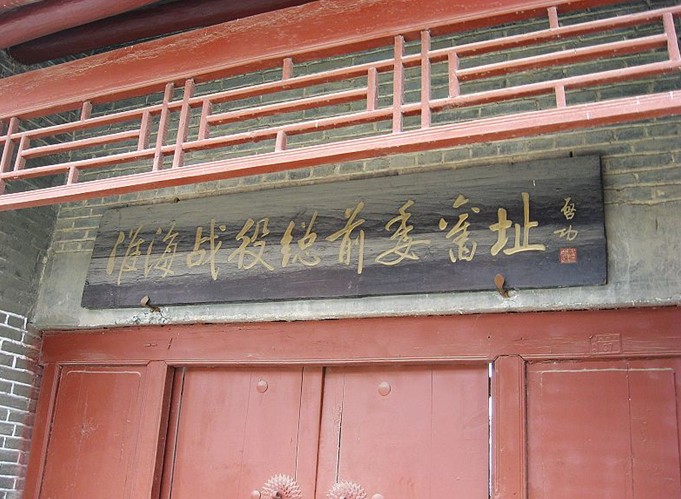 淮海战役总前委旧址
启功